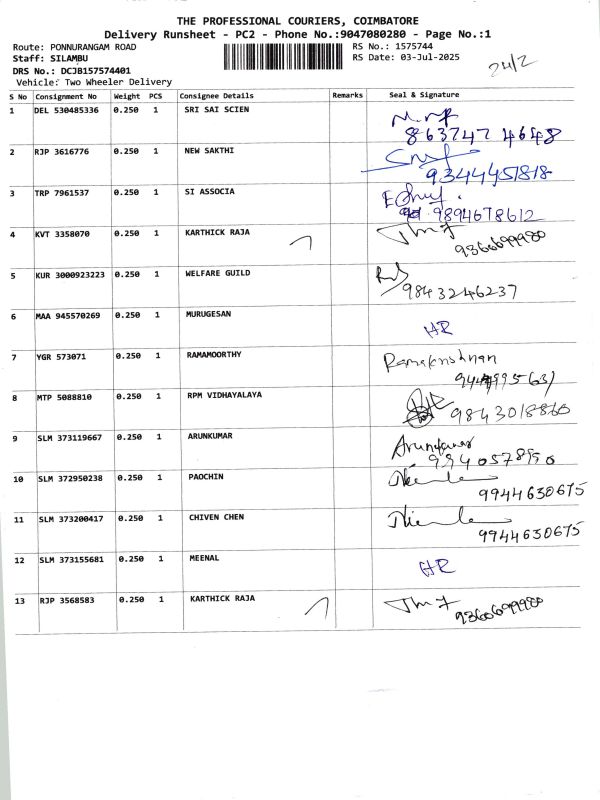 THE PROFESSIONAL COURIERS, COIMBATORE
Delivery Runsheet - PC2 - Phone No.:9047080280 - Page No.:1
Route: PONNURANGAM ROAD RS No.: 1575744
Staff: SILAMBU RS Date: 03-Jul-2025
24/2
DRS No.: DCJB157574401
Vehicle: Two Wheeler Delivery
S No Consignment No Weight PCS Consignee Details Remarks Seal & Signature
1 DEL 530485336 0.250 1 SRI SAI SCIEN
863747 4648
2 RJP 3616776 0.250 1 NEW SAKTHI
9344451818
3 TRP 7961537 0.250 1 SI ASSOCIA
9894678612
4 KVT 3358070 0.250 1 KARTHICK RAJA
9360699980
5 KUR 3000923223 0.250 1 WELFARE GUILD
9843246237
6 MAA 945570269 0.250 1 MURUGESAN
HR
7 YGR 573071 0.250 1 RAMAMOORTHY Ramakrishnan
8 MTP 5088810 0.250 1 RPM VIDHYALAYA
9843018860
9 SLM 373119667 0.250 1 ARUNKUMAR Arunkumar
9940578990
10 SLM 372950238 0.250 1 PAOCHIN
9944630675
11 SLM 373200417 0.250 1 CHIVEN CHEN
9944630675
12 SLM 373155681 0.250 1 MEENAL
HR
13 RJP 3568583 0.250 1 KARTHICK RAJA
9360699980